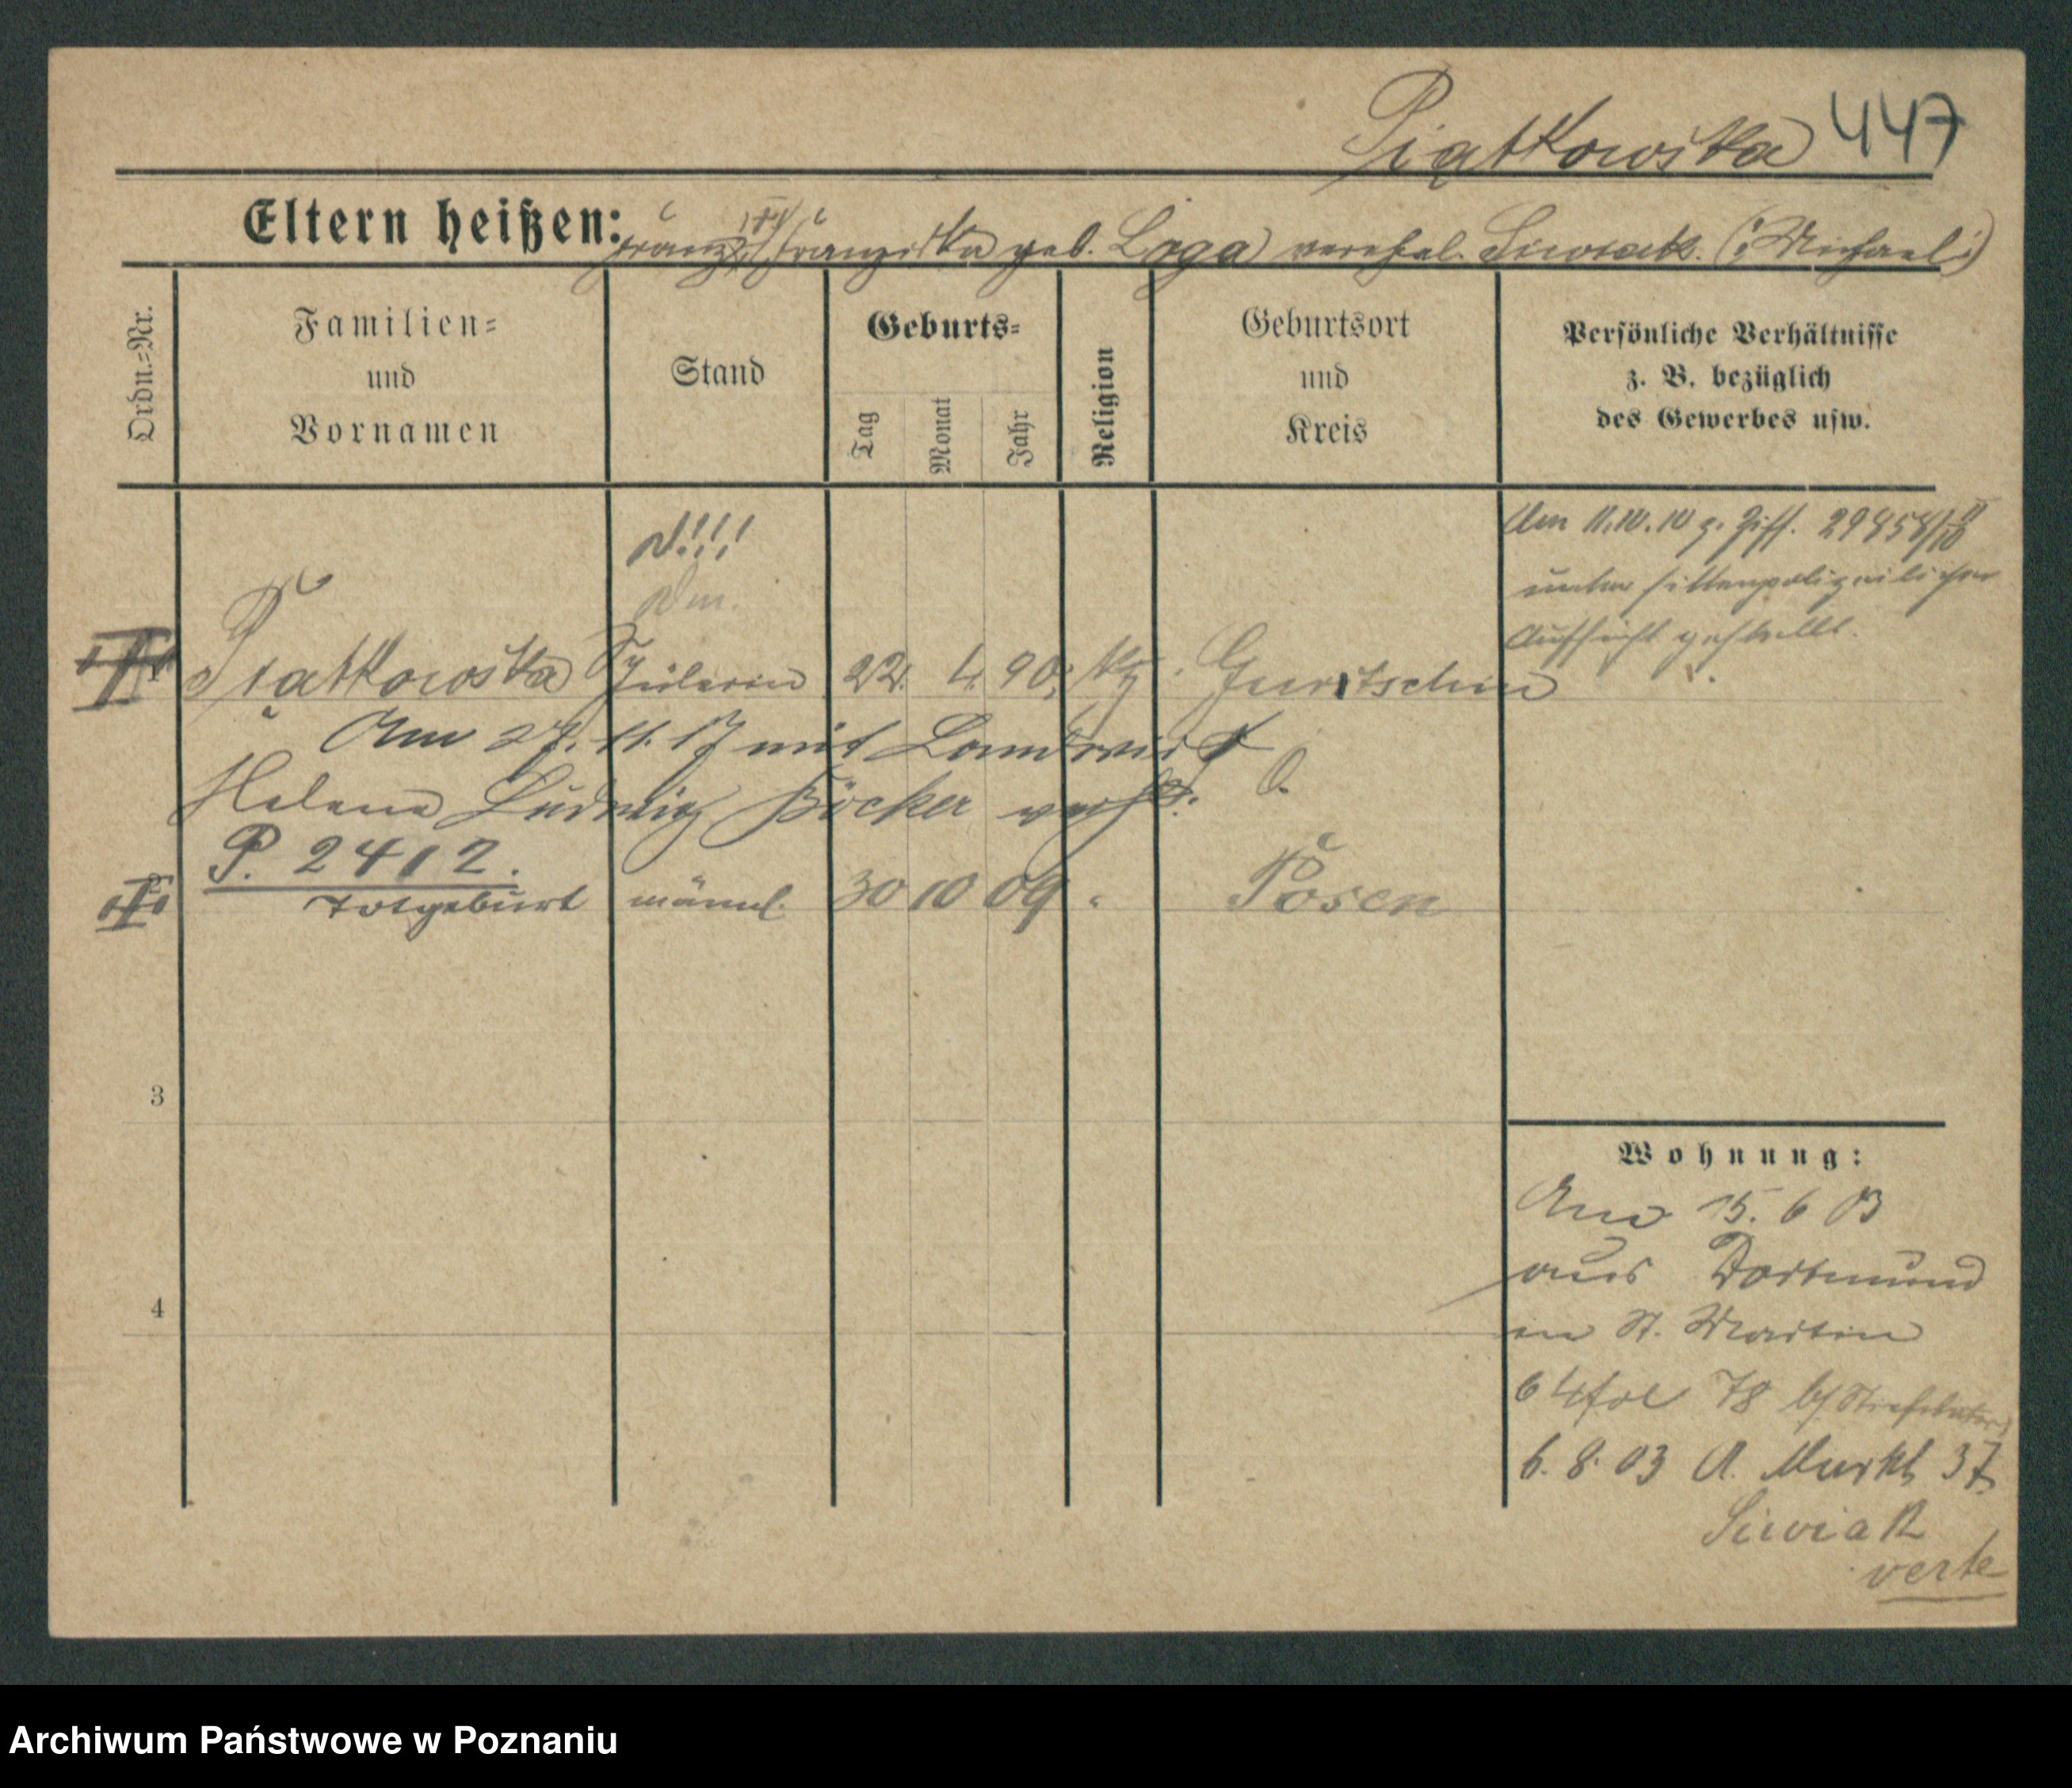 Piątkowska 447
Eltern heißen: Franz, Franziska geb. Loga verehel. Siwiak. (: Michael :)
Ordn.=Nr.
Familien=
und
Vornamen
Stand
Geburts=
Tag
Monat
Jahr
Religion
Geburtsort
und
Kreis
Persönliche Verhältnisse
z. B. bezüglich
des Gewerbes usw.
Am 11.10.10 z. Ziff.
unter sittenpolizeilicher
Aufsicht gestellt.
Piątkowska Schülerin 22. 4. 90. Gurtschin
Am 27. 11. 17 mit Landwirt
Helene Ludwig Böcker verh.
P. 2412.
Totgeburt männl. 30 10 09 Posen
3
4
Wohnung:
15. 6 03
aus Dortmund
in St. Martin
64 fol 78
6. 8. 03 A. Markt 37
Siwiak
verte
Archiwum Państwowe w Poznaniu